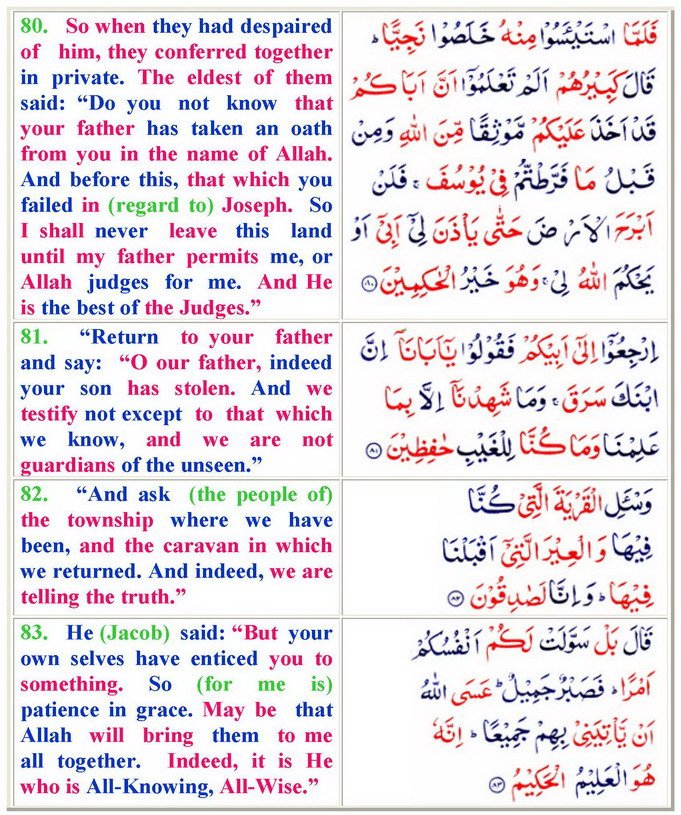 80. So when they had despaired
of him, they conferred together
in private. The eldest of them
said: “Do you not know that
your father has taken an oath
from you in the name of Allah.
And before this, that which you
failed in (regard to) Joseph. So
I shall never leave this land
until my father permits me, or
Allah judges for me. And He
is the best of the Judges.”
فَلَمَّا اسْتَيْـَٔسُوْا مِنْهُ خَلَصُوْا نَجِيًّا ؕ
قَالَ كَبِيْرُهُمْ اَلَمْ تَعْلَمُوْٓا اَنَّ اَبَاكُمْ
قَدْ اَخَذَ عَلَيْكُمْ مَّوْثِقًا مِّنَ اللّٰهِ وَمِنْ
قَبْلُ مَا فَرَّطْتُّمْ فِيْ يُوْسُفَ ۚ فَلَنْ
اَبْرَحَ الْاَرْضَ حَتّٰى يَاْذَنَ لِيْٓ اَبِيْٓ اَوْ
يَحْكُمَ اللّٰهُ لِيْ ۚ وَهُوَ خَيْرُ الْحٰكِمِيْنَ ۸۰
81. “Return to your father
and say: “O our father, indeed
your son has stolen. And we
testify not except to that which
we know, and we are not
guardians of the unseen.”
اِرْجِعُوْٓا اِلٰٓى اَبِيْكُمْ فَقُوْلُوْا يٰٓاَبَانَآ اِنَّ
ابْنَكَ سَرَقَ ۚ وَمَا شَهِدْنَآ اِلَّا بِمَا
عَلِمْنَا وَمَا كُنَّا لِلْغَيْبِ حٰفِظِيْنَ ۸۱
82. “And ask (the people of)
the township where we have
been, and the caravan in which
we returned. And indeed, we are
telling the truth.”
وَسْـَٔلِ الْقَرْيَةَ الَّتِيْ كُنَّا
فِيْهَا وَالْعِيْرَ الَّتِيْٓ اَقْبَلْنَا
فِيْهَا ؕ وَاِنَّا لَصٰدِقُوْنَ ۸۲
83. He (Jacob) said: “But your
own selves have enticed you to
something. So (for me is)
patience in grace. May be that
Allah will bring them to me
all together. Indeed, it is He
who is All-Knowing, All-Wise.”
قَالَ بَلْ سَوَّلَتْ لَكُمْ اَنْفُسُكُمْ
اَمْرًا ؕ فَصَبْرٌ جَمِيْلٌ ؕ عَسَى اللّٰهُ
اَنْ يَّاْتِيَنِيْ بِهِمْ جَمِيْعًا ؕ اِنَّهٗ
هُوَ الْعَلِيْمُ الْحَكِيْمُ ۸۳